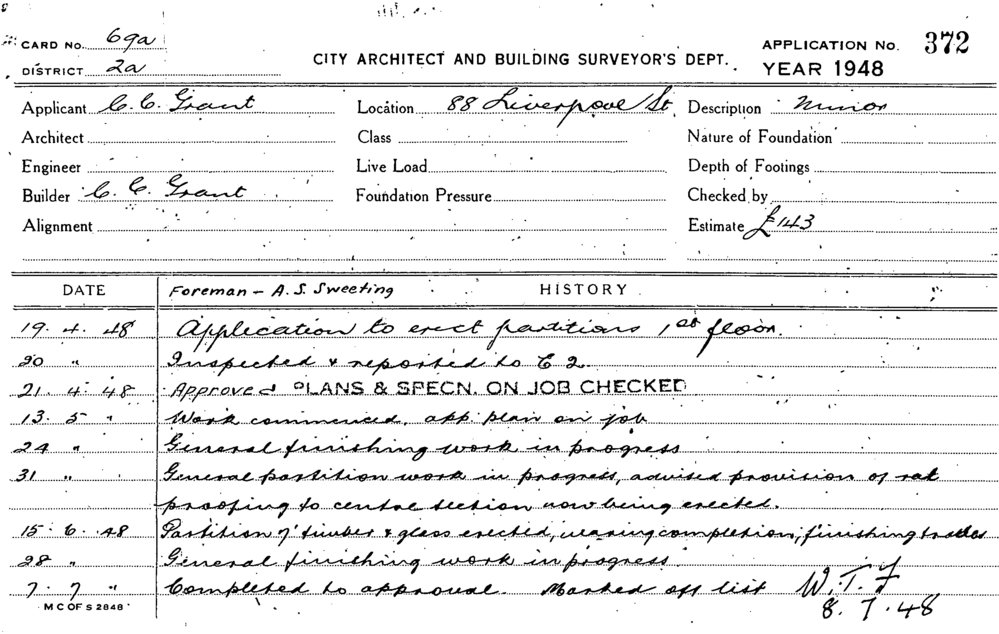 CARD No. 69a
DISTRICT 2a
CITY ARCHITECT AND BUILDING SURVEYOR'S DEPT.
APPLICATION No. 372
YEAR 1948
Applicant C. C. Grant Location 88 Liverpool St. Description Minor
Architect Class Nature of Foundation
Engineer Live Load Depth of Footings
Builder C. C. Grant Foundation Pressure Checked by
Alignment Estimate £143
DATE Foreman - A. S. Sweeting HISTORY
19. 4. 48 Application to erect partitions 1st floor.
20 " Inspected & reported to C 2.
21. 4. 48 Approved PLANS & SPECN. ON JOB CHECKED
13. 5 " Work commenced, app. plan on job
24 " General finishing work in progress
31 " General partition work in progress, advised provision of rat
proofing to centre section now being erected.
15. 6. 48 Partition of timber & glass erected, nearing completion, finishing trades
28 " General finishing work in progress.
7. 7 " Completed to approval. Marked off list W. T. F
M C OF S 2848 8. 7. 48